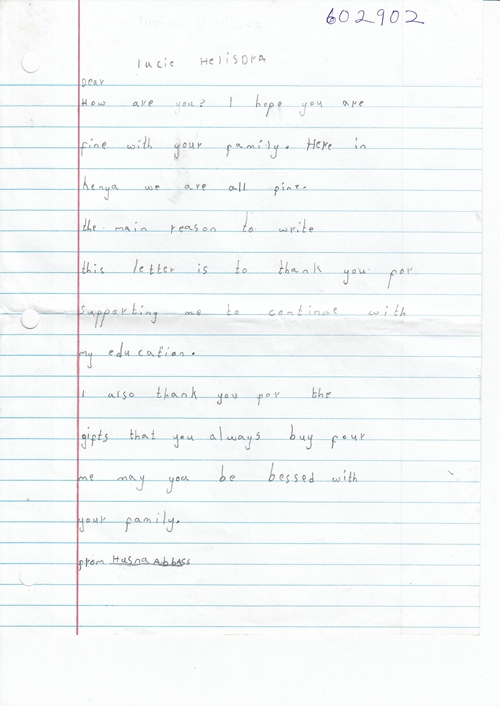 602902
Lucie Helisora
Dear
How are you? I hope you are
fine with your family. Here in
kenya we are all fine.
the main reason to write
this letter is to thank you for
supporting me to continue with
my education.
I also thank you for the
gifts that you always buy four
me may you be bessed with
your family.
from Husna Abbass